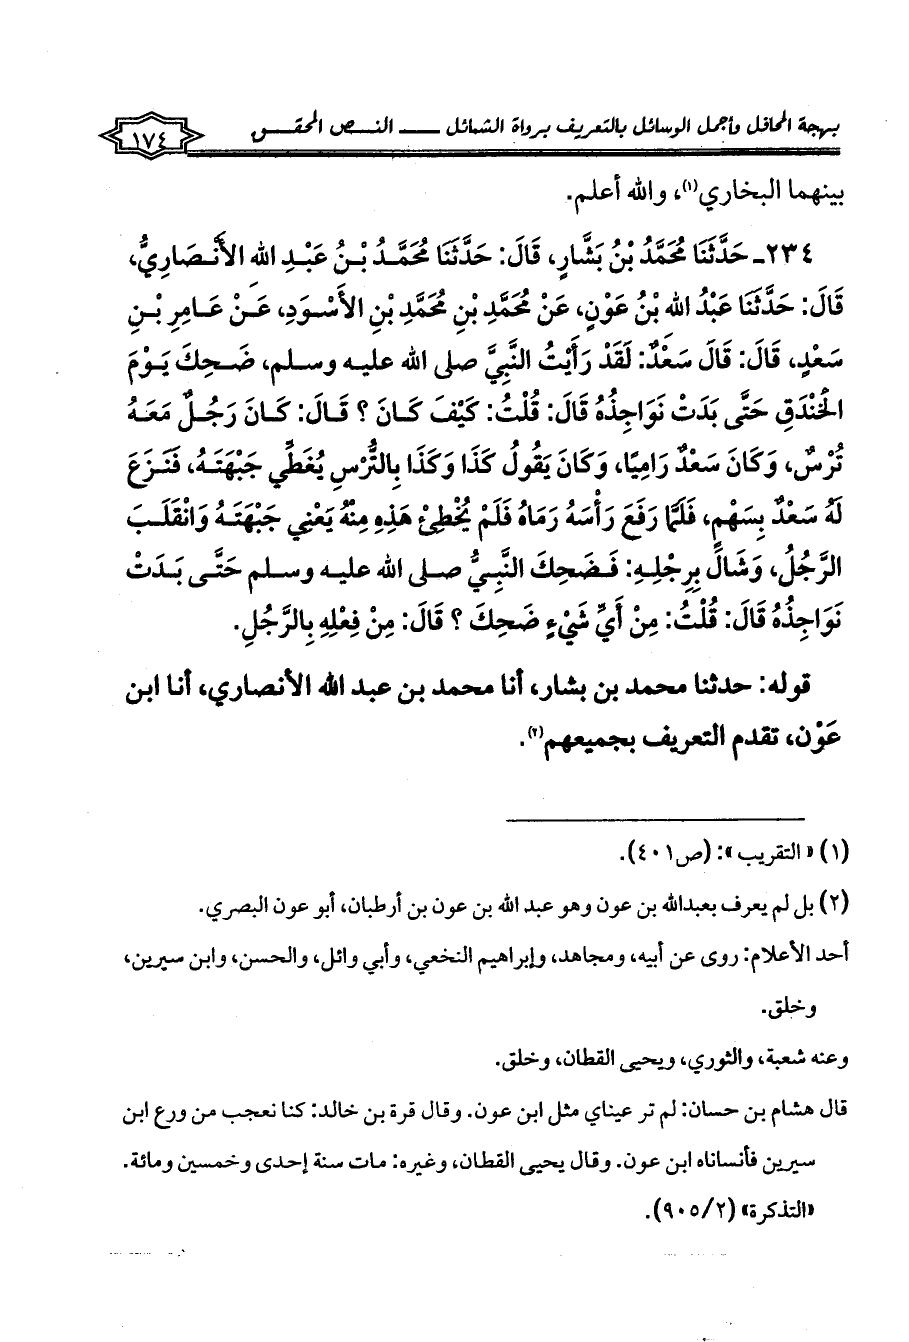 بهجة المحافل وأجمل الوسائل بالتعريف برواة الشمائل ـــ النـص المحقـق
١٧٤
بينهما البخاري(١)، والله أعلم.
٢٣٤ـ حَدَّثَنَا مُحَمَّدُ بْنُ بَشَّارٍ، قَالَ: حَدَّثَنَا مُحَمَّدُ بْنُ عَبْدِ الله الأَنْصَارِيُّ،
قَالَ: حَدَّثَنَا عَبْدُ الله بْنُ عَوْنٍ، عَنْ مُحَمَّدِ بْنِ مُحَمَّدِ بْنِ الأَسْوَدِ، عَنْ عَامِرِ بْنِ
سَعْدٍ، قَالَ: قَالَ سَعْدٌ: لَقَدْ رَأَيْتُ النَّبِيَّ صلى الله عليه وسلم، ضَحِكَ يَوْمَ
الخَنْدَقِ حَتَّى بَدَتْ نَوَاجِذُهُ قَالَ: قُلْتُ: كَيْفَ كَانَ ؟ قَالَ: كَانَ رَجُلٌ مَعَهُ
تُرْسٌ، وَكَانَ سَعْدٌ رَامِيًا، وَكَانَ يَقُولُ كَذَا وَكَذَا بِالتُّرْسِ يُغَطِّي جَبْهَتَهُ، فَنَزَعَ
لَهُ سَعْدٌ بِسَهْمٍ، فَلَمَّا رَفَعَ رَأْسَهُ رَمَاهُ فَلَمْ يُخْطِئْ هَذِهِ مِنْهُ يَعْنِي جَبْهَتَهُ وَانْقَلَبَ
الرَّجُلُ، وَشَالَ بِرِجْلِهِ: فَضَحِكَ النَّبِيُّ صلى الله عليه وسلم حَتَّى بَدَتْ
نَوَاجِذُهُ قَالَ: قُلْتُ: مِنْ أَيِّ شَيْءٍ ضَحِكَ ؟ قَالَ: مِنْ فِعْلِهِ بِالرَّجُلِ.
قوله: حدثنا محمد بن بشار، أنا محمد بن عبد الله الأنصاري، أنا ابن
عَوْن، تقدم التعريف بجميعهم(٢).
(١) «التقريب»: (ص٤٠١).
(٢) بل لم يعرف بعبدالله بن عون وهو عبد الله بن عون بن أرطبان، أبو عون البصري.
أحد الأعلام: روى عن أبيه، ومجاهد، وإبراهيم النخعي، وأبي وائل، والحسن، وابن سيرين،
وخلق.
وعنه شعبة، والثوري، ويحيى القطان، وخلق.
قال هشام بن حسان: لم تر عيناي مثل ابن عون. وقال قرة بن خالد: كنا نعجب من ورع ابن
سيرين فأنساناه ابن عون. وقال يحيى القطان، وغيره: مات سنة إحدى وخمسين ومائة.
«التذكرة» (٩٠٥/٢).